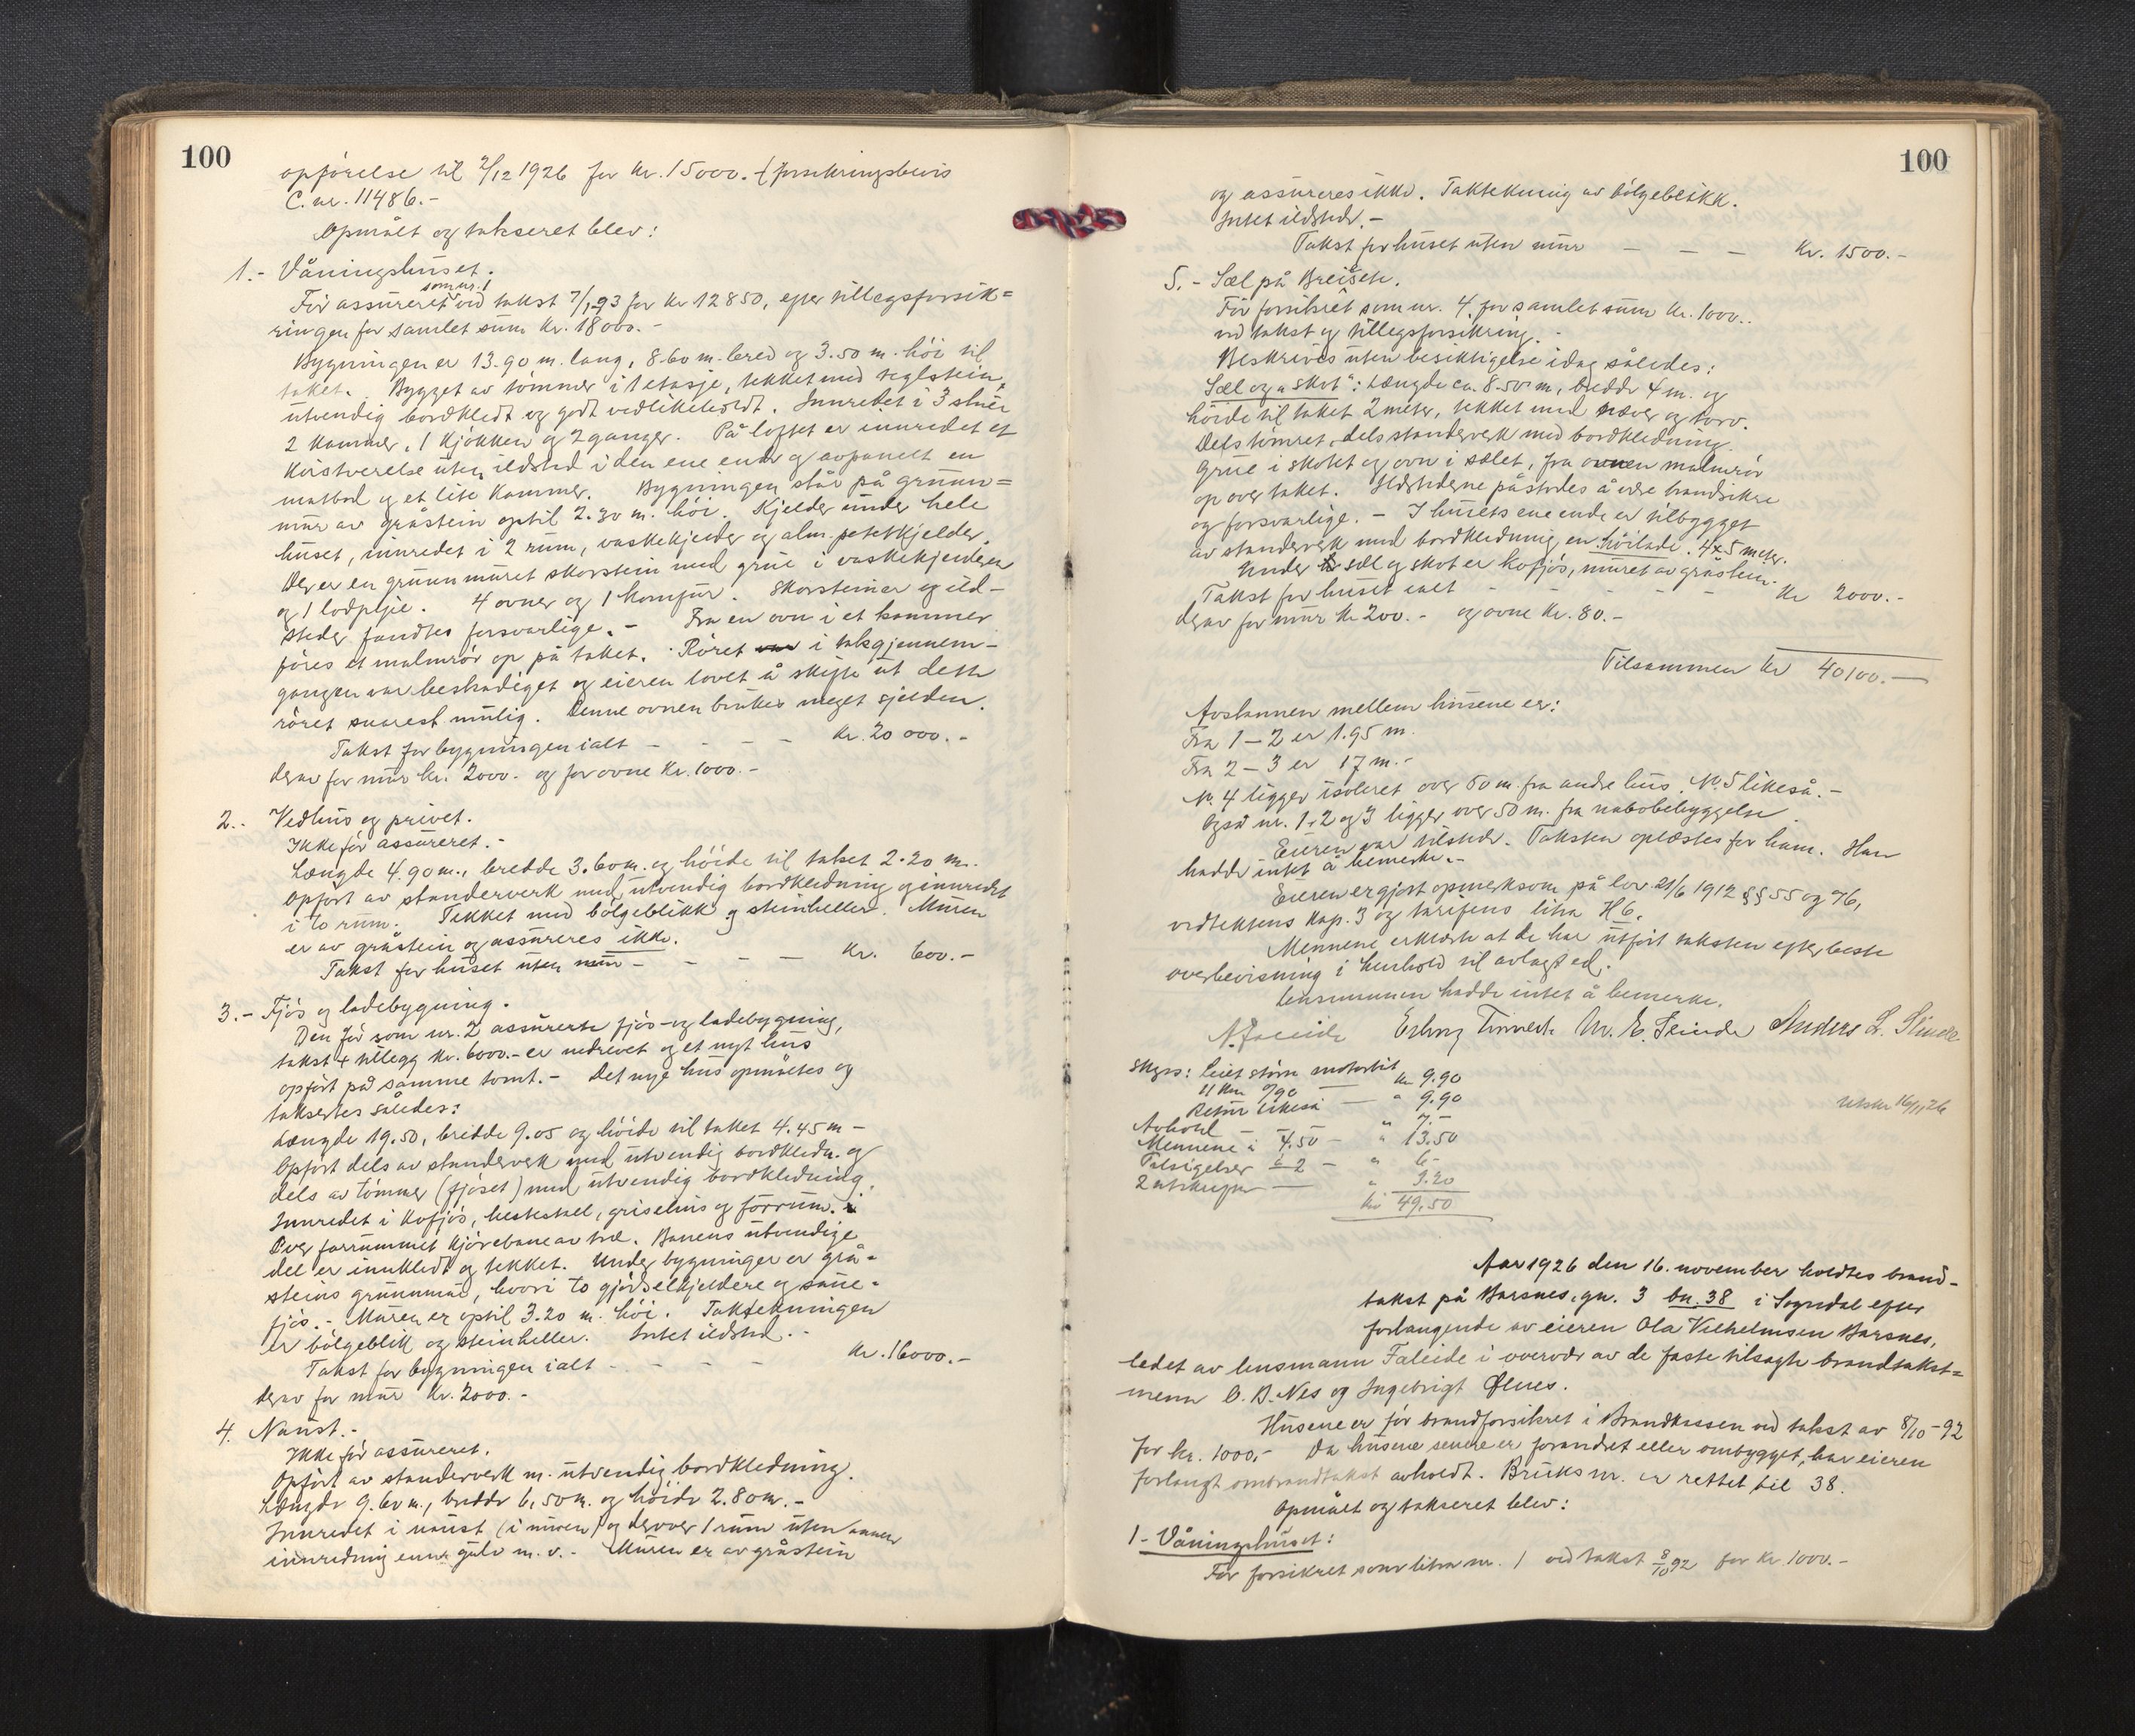 100
opførelse til 2/12 1926 for kr. 15000. (forsikringsbevis
C. nr. 11486.-
Opmålt og taksert blev:
1.- Våningshuset.
som nr. 1
Før assureret ved takst 7/1 93 for kr 12850, efter tillegsforsik=
ringen for samlet sum kr. 18000.-
Bygningen er 13.90 m. lang, 8.60 m. bred og 3.50 m. høi til
taket. Bygget av tømmer i 1 etasje, tekket med teglstein,
utvendig bordkledt og godt vedlikeholdt. Innredet i 3 stuer
2 kammer, 1 kjøkken og 2 ganger. På loftet er innredet et
kvistverelse uten ildsted i den ene ende og avpanelt en
matbod og et lite kammer. Bygningen står på grunn=
mur av gråstein optil 2.30 m. høi. Kjelder under hele
huset, innredet i 2 rum, vaskekjelder og alm. potetkjelder.
Der er en grunnmuret skorstein med grue i vaskekjelderen
og 1 lodpipe. 4 ovner og 1 komfur. Skorsteiner og ild-
steder fandtes forsvarlige.- Fra en ovn i et kammer
føres et malmrør op på taket. Røret var i taksgjennem-
gangen var beskadiget og eieren lovet å skifte ut dette
røret snarest mulig. Denne ovnen brukes meget sjelden.
Takst for bygningen ialt - - - - kr. 20 000.-
derav for mur kr. 2000.- og for ovne kr. 1000.-
2.- Vedhus og privet.
Ikke før assureret.-
Længde 4.90 m., bredde 3.60 m. og høide til taket 2.20 m.
Opført av standerverk med utvendig bordkledning og innredet
i to rum. Tekket med bølgeblikk og steinheller. Muren
er av gråstein og assureres ikke.
Takst for huset uten mur - - - - kr. 600.-
3.- Fjøs og ladebygning.
Den før som nr. 2 assurerte fjøs- og ladebygning,
takst + tillegg kr. 6000.- er nedrevet og et nyt hus
opført på samme tomt.- Det nye hus opmåltes og
taksertes således:
Længde 19.50, bredde 9.05 og høide til taket 4.45 m -
Opført dels av standerverk med utvendig bordkledn. og
dels av tømmer (fjøset) med utvendig bordkledning.
Innredet i kofjøs, hestestal, grisehus og forrum.
Over forrummet kjørebane av træ. Banens utvendige
del er innkledt og tekket. Under bygningen er grå-
steins grunnmur, hvori to gjødselkjeldere og saue-
fjøs.- Muren er optil 3.20 m. høi. Taktekningen
er bølgeblik og steinheller. Intet ildsted.-
Takst for bygningen ialt - - - - kr. 16000.-
derav for mur kr. 2000.-
4. Naust.-
Ikke før assureret.
Opført av standerverk m. utvendig bordkledning.
Længde 9.60 m., bredde 6,50 m. og høide 2.80 m.-
Innredet i naust (i muren) og derover 1 rum uten annen
innredning enn gulv m. v.- Muren er av gråstein
100
og assureres ikke. Taktekning av bølgeblikk.
Intet ildsted.-
Takst for huset uten mur - - - kr. 1500.-
5.- Sæl på Breisete.
Før forsikret som nr. 4, for samlet sum kr. 1000..
ved takst og tillegsforsikring.-
Beskrives uten besiktigelse idag således:
Sæl og "skot": Længde ca. 8.50 m, bredde 4 m. og
høide til taket 2 meter, tekket med næver og torv.
Dels tømret, dels standerverk med bordkledning.
Grue i skotet og ovn i sælet, fra ovnen malmrør
op over taket. Ildstederne påstodes å være brandsikre
og forsvarlige.- I husets ene ende er tilbygget
av standerverk med bordkledning en høilade. 4x5 meter.
Under sæl og skot er kofjøs, muret av gråstein.
Takst for huset ialt - - - - - kr 2000.-
derav for mur kr 200.- og ovne kr. 80.-
Tilsammen kr 40100.-
Avstannen mellem husene er:
Fra 1-2 er 1.95 m.
Fra 2-3 er 17 m.-
Nr. 4 ligger isoleret over 50 m. fra andre hus. Nr. 5 likeså.-
Også nr. 1, 2 og 3 ligger over 50 m. fra nabobebyggelse.
Eieren var tilstede. Taksten oplæstes for ham. Han
hadde intet å bemerke.-
Eieren er gjort opmerksom på lov 21/6 1912 §§ 55 og 76,
vedtektens kap. 3 og tarifens litra H 6.
Mennene erklærte at de har utført taksten efter beste
overbevisning i henhold til avlagt ed.
Lensmannen hadde intet å bemerke.
N. Faleide Erling M. E. Slinde Anders L. Slinde
Skyss: leiet større motorbåt
11 km. 0/90 - kr 9.90
Retur likeså - " 9.90
Avhold - - " 7.-
Mennene à 4.50 - " 13.50
Tilsigelser à 2 - " 6-
2 utskrifter - " 3.20
kr 49.50
Utskr 16/11 26
Aar 1926 den 16. november holdtes brand-
takst på Barsnes, gn. 3 bn. 38 i Sogndal efter
forlangende av eieren Ola Vilhelmsen Barsnes,
ledet av lensmann Faleide i overvær av de faste tilsagte brandtakst=
menn O. B. Nes og Ingebrigt Ølnes.
Husene er før brandforsikret i Brandkassen ved takst av 8/10-92
for kr. 1000.- Da husene senere er forandret eller ombygget, har eieren
forlangt ombrandtakst avholdt. Bruks nr. er rettet til 38.
Opmålt og takseret blev:
1- Våningshuset:
Før forsikret som litra nr. 1 ved takst 8/10 92 for kr. 1000.-